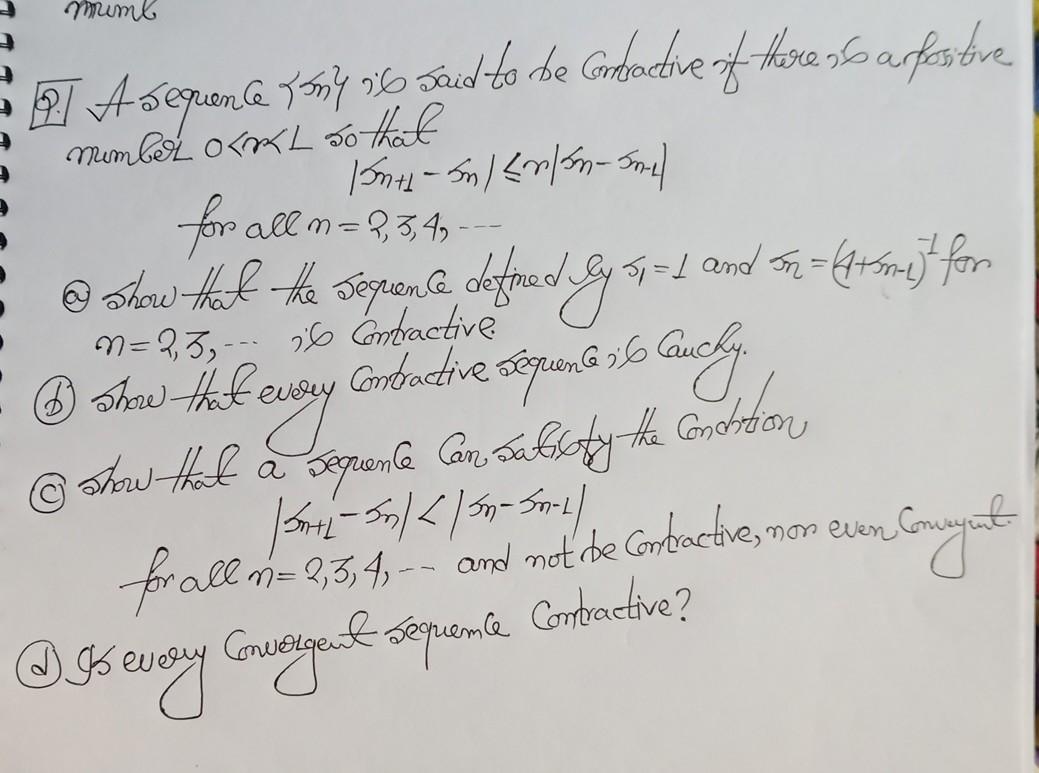 Q. A sequence {sn} is said to be contractive if there is a positive
number 0<r<1 so that
|sn+1 - sn| ≤ r|sn - sn-1|
for all n = 2,3,4, ---
(a) show that the sequence defined by s1 = 1 and sn = (4+sn-1)^-1 for
n = 2,3, --- is contractive.
(b) show that every contractive sequence is Cauchy.
(c) show that a sequence can satisfy the condition
|sn+1 - sn| < |sn - sn-1|
for all n = 2,3,4, --- and not be contractive, nor even convergent.
(d) Is every convergent sequence contractive?